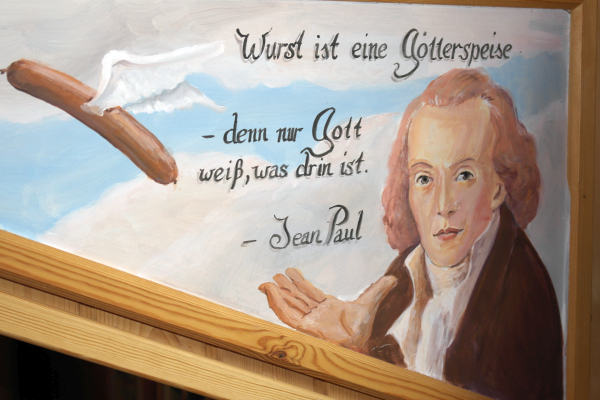 Wurst ist eine Götterspeise
– denn nur Gott
weiß, was drin ist.
– Jean Paul